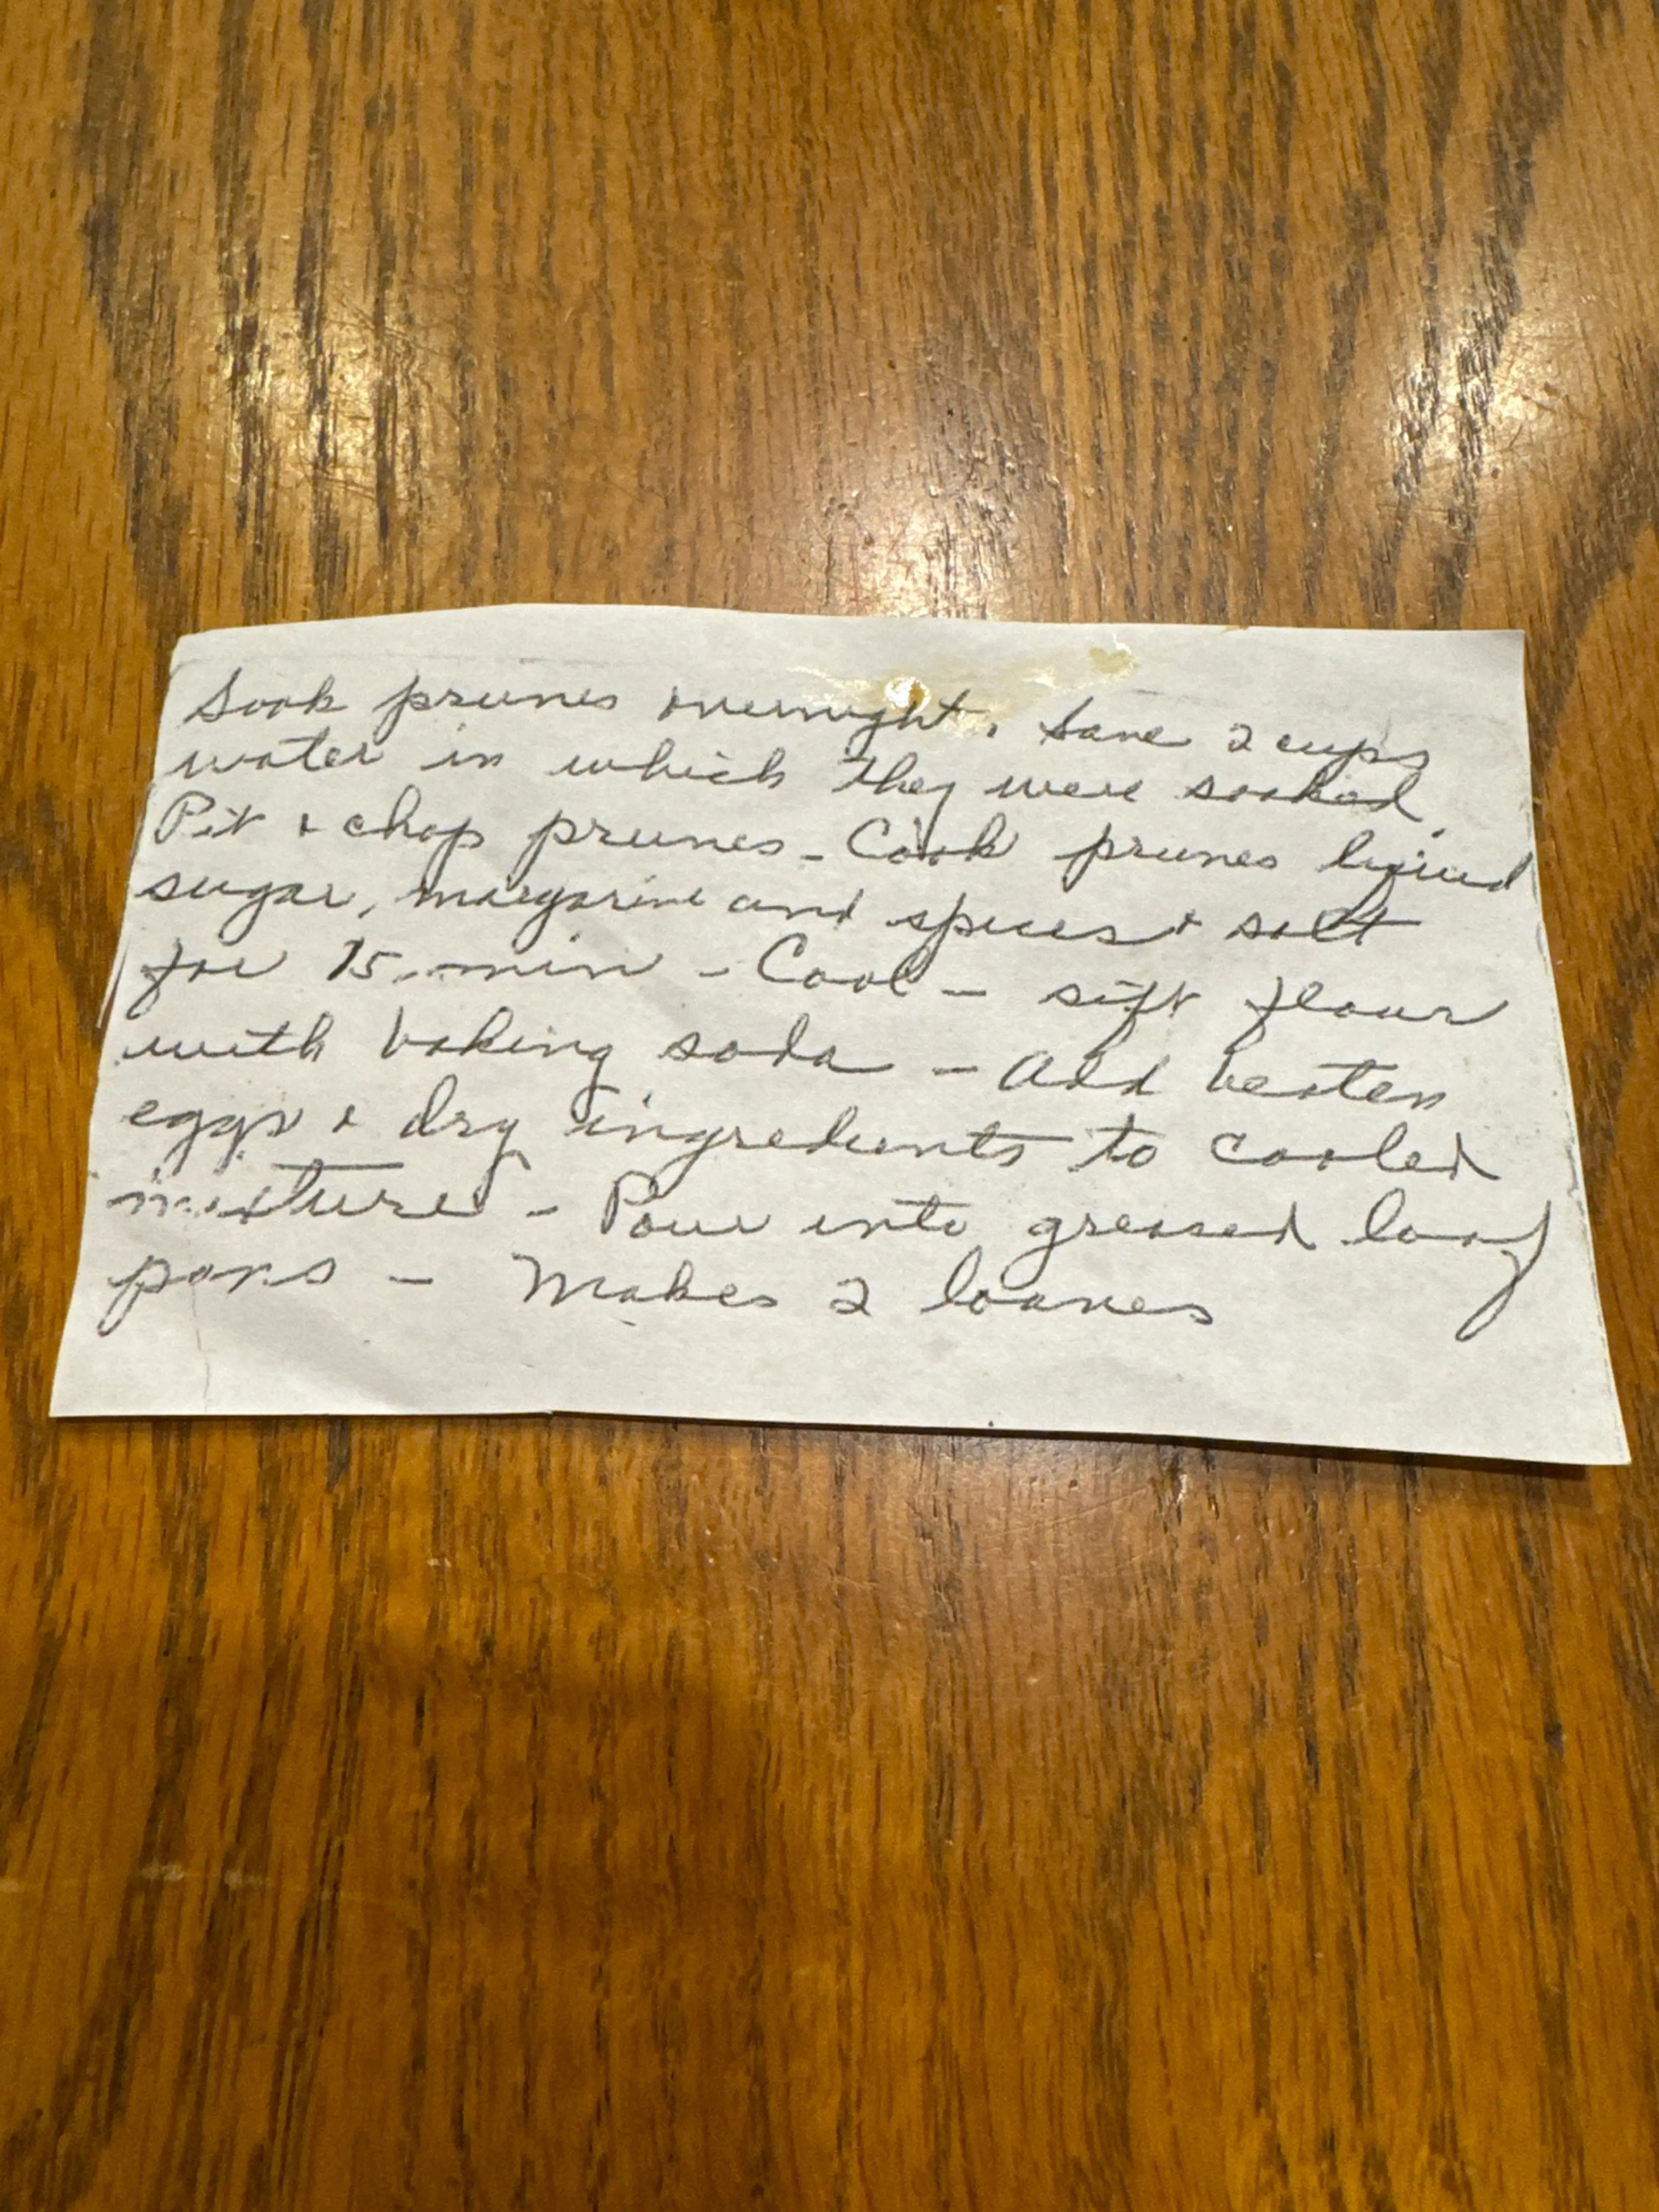 Soak prunes overnight. Save 2 cups
water in which they were soaked.
Pit & chop prunes - Cook prunes liquid
sugar, margarine and spices & salt
for 15 min - Cool - sift flour
with baking soda - Add beaten
eggs & dry ingredients to cooled
mixture - Pour into greased loaf
pans - Makes 2 loaves